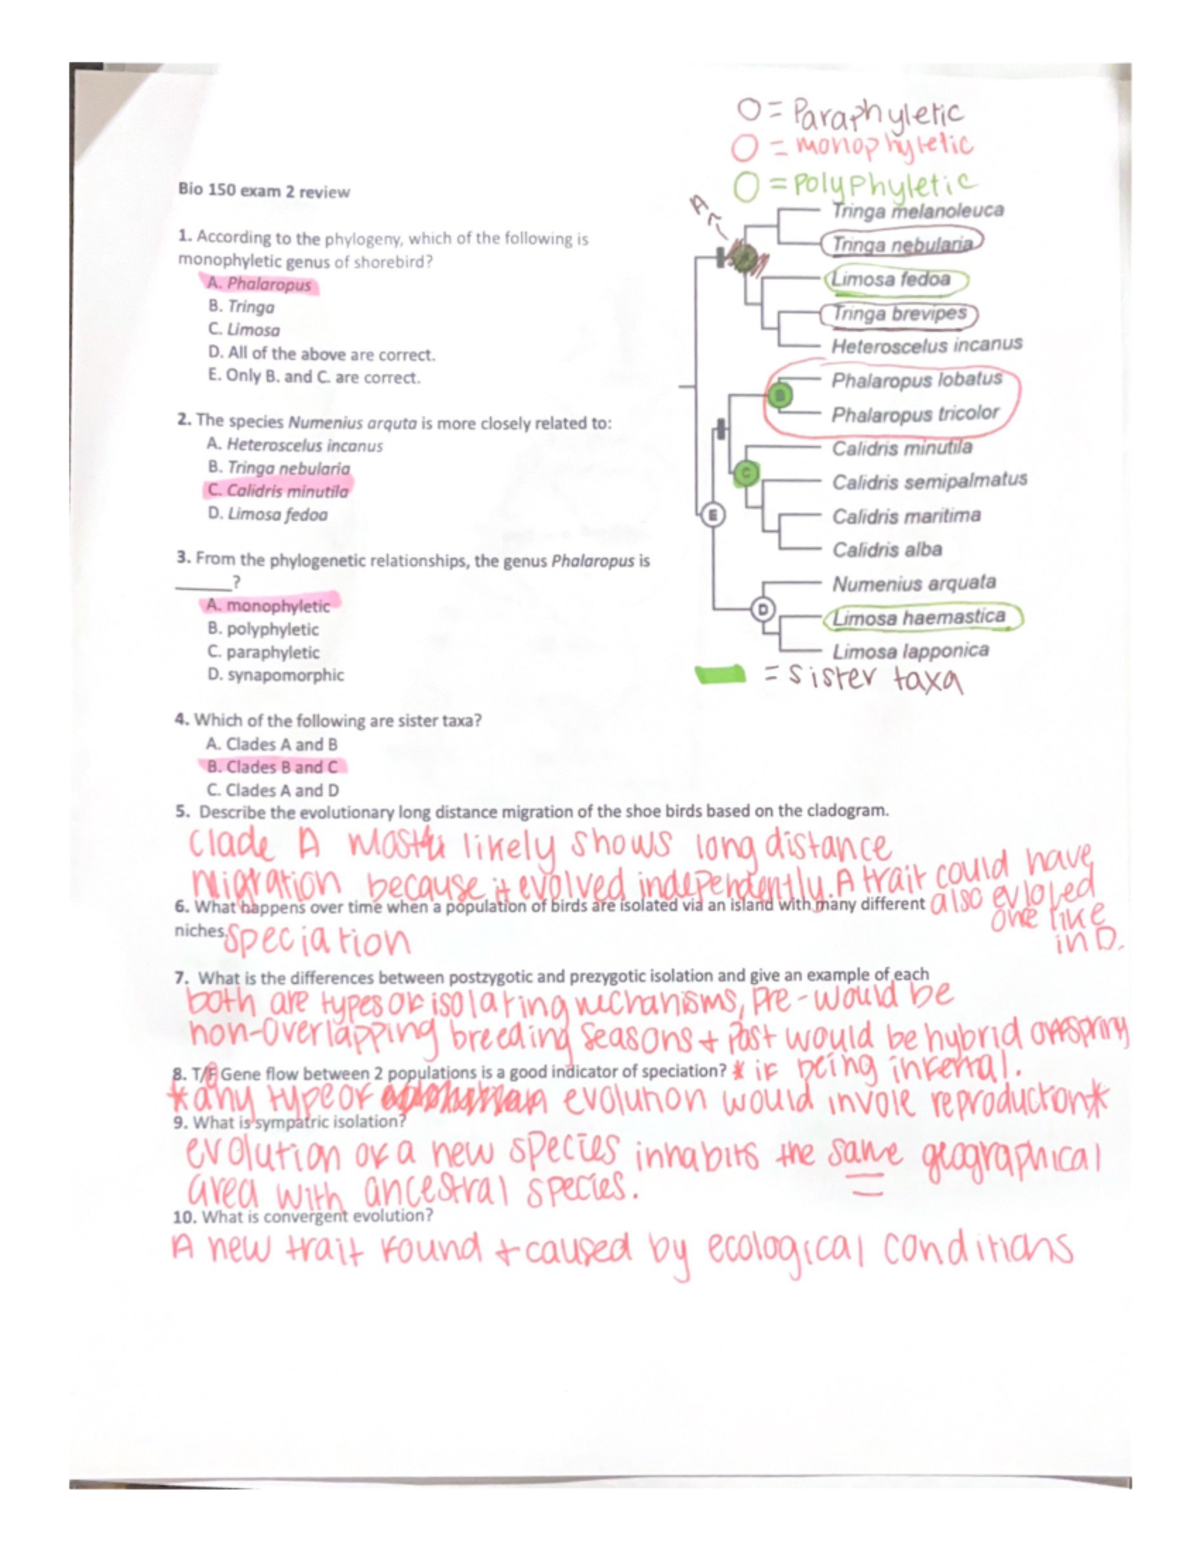 O = Paraphyletic
O = monophyletic
O = Polyphyletic
Bio 150 exam 2 review
1. According to the phylogeny, which of the following is
monophyletic genus of shorebird?
A. Phalaropus
B. Tringa
C. Limosa
D. All of the above are correct.
E. Only B. and C. are correct.
2. The species Numenius arquta is more closely related to:
A. Heteroscelus incanus
B. Tringa nebularia
C. Calidris minutila
D. Limosa fedoa
3. From the phylogenetic relationships, the genus Phalaropus is
______?
A. monophyletic
B. polyphyletic
C. paraphyletic
D. synapomorphic
4. Which of the following are sister taxa?
A. Clades A and B
B. Clades B and C
C. Clades A and D
A
Tringa melanoleuca
Tringa nebularia
Limosa fedoa
Tringa brevipes
Heteroscelus incanus
B
Phalaropus lobatus
Phalaropus tricolor
Calidris minutila
C
Calidris semipalmatus
E
Calidris maritima
Calidris alba
Numenius arquata
D
Limosa haemastica
Limosa lapponica
= Sister taxa
5. Describe the evolutionary long distance migration of the shoe birds based on the cladogram.
Clade A likely shows long distance
migration because it evolved independently. A trait could have
also evloled
one like
in D.
6. What happens over time when a population of birds are isolated via an island with many different
niches.
Speciation
7. What is the differences between postzygotic and prezygotic isolation and give an example of each
both are types of isolating mechanisms, Pre-would be
non-overlapping breeding seasons + Post would be hybrid offspring
8. T/F Gene flow between 2 populations is a good indicator of speciation? * if being infertal.
*any type of evolution would invole reproduction*
9. What is sympatric isolation?
evolution of a new species inhabits the same geographical
area with ancestral species.
10. What is convergent evolution?
A new trait found + caused by ecological conditions